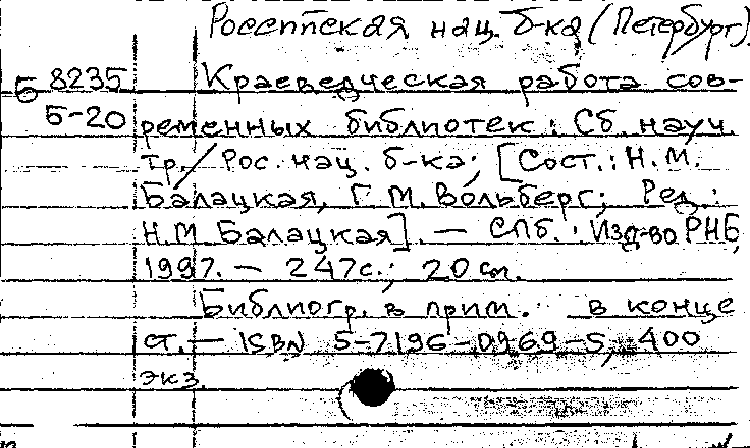 Российская нац. б-ка (Петербург)
Б 8235 Краеведческая работа сов-
5-20 ременных библиотек: Сб. науч.
тр. / Рос. нац. б-ка; [Сост.: Н.М.
Балацкая, Г.М. Вольберг; Ред.:
Н.М. Балацкая]. — СПб.: Изд-во РНБ,
1997. — 247с.; 20 см.
Библиогр. в прим. в конце
ст. — ISBN 5-7196-0969-5, 400
экз.